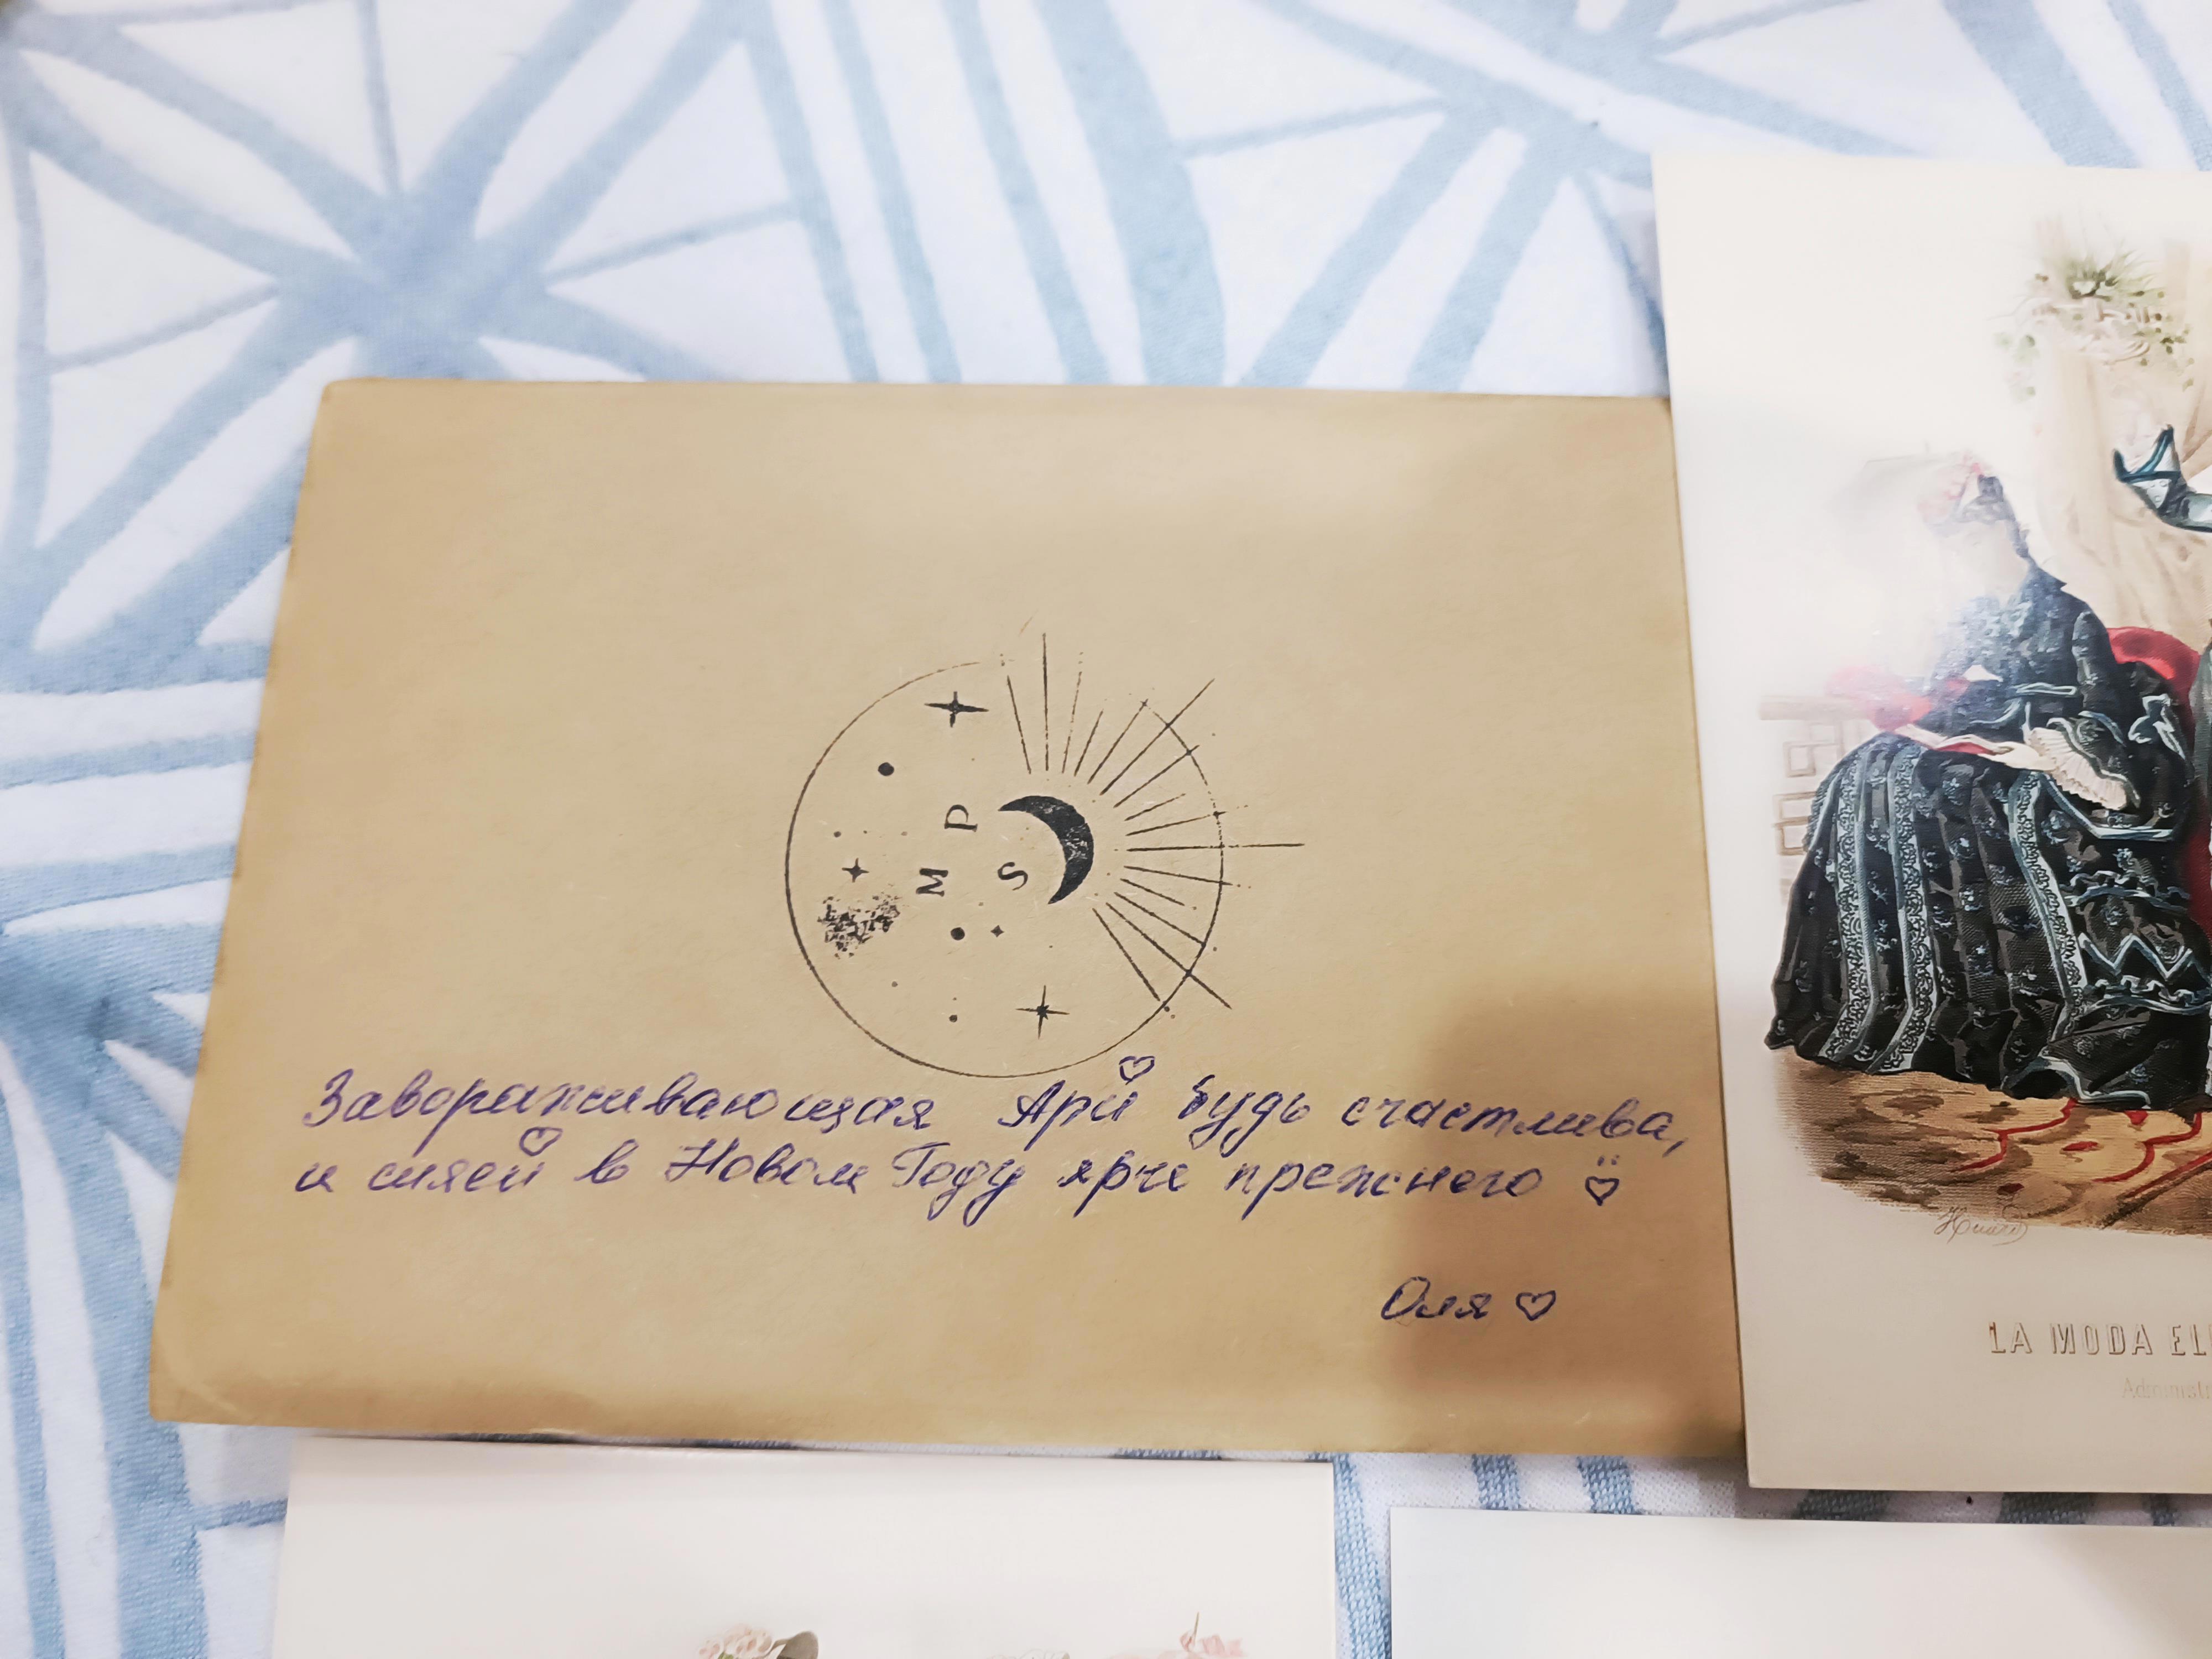 M P S
Завораживающая Ари будь счастлива,
и сияй в Новом Году ярче прежнего
Оля
LA MODA